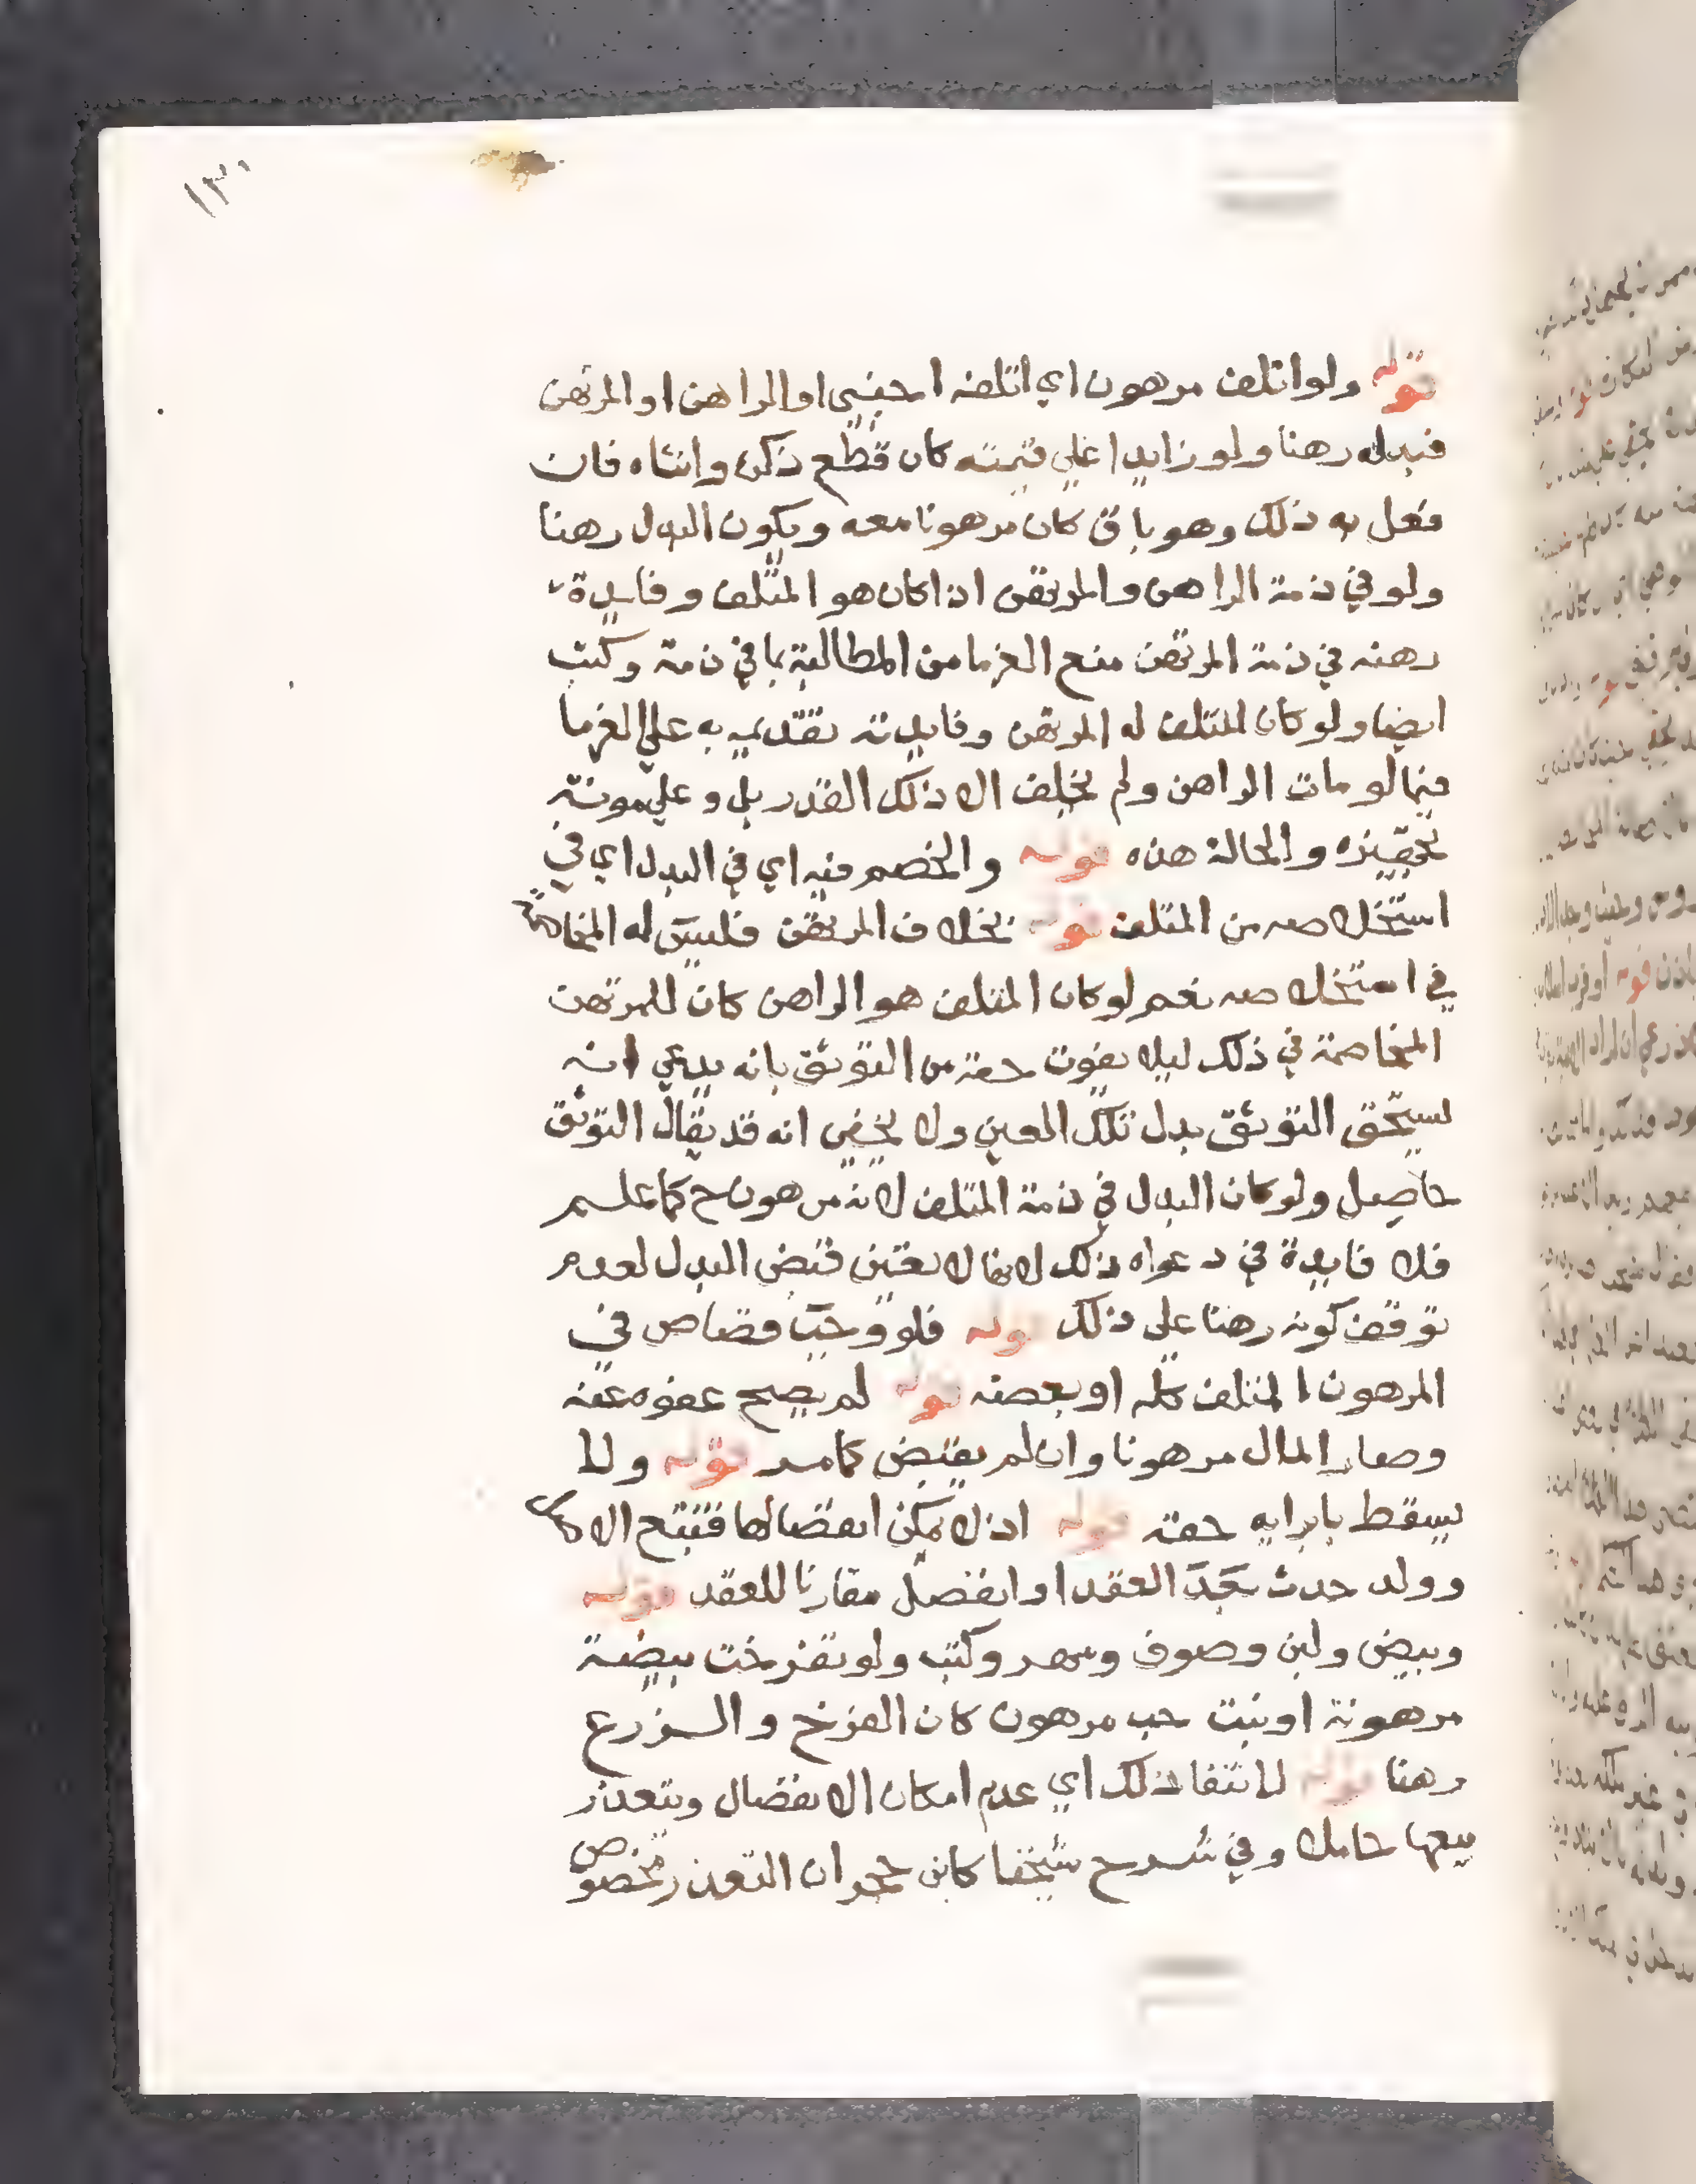 ١٣٠
قوله ولو اتلف مرهون اي اتلفه اجنبي او الراهن او المرتهن
فبدله رهنا ولو زايدا علي قيمته كان قطع ذكره وانثاه فان
فعل به ذلك وهو باق كان مرهونا معه ويكون البدل رهنا
ولو في ذمة الراهن والمرتهن اذا كان هو المتلف وفايدة
رهنه في ذمة المرتهن منع الغرما من المطالبة بما في ذمته وكتب
ايضا ولو كان المتلف له المرتهن وفايدته تقديمه به علي الغرما
فيما لو مات الراهن ولم يخلف الا ذلك القدر بل و علي مونة
تجهيزه والحالة هذه قوله والخصم فيه اي في البدل اي في
استخلاصه من المتلف قوله بخلاف المرتهن فليس له المخاصمة
في استخلاصه نعم لو كان المتلف هو الراهن كان للمرتهن
المخاصمة في ذلك ليلا يفوت حقه من التوثق بانه يدعي انه
يستحق التوثق بدل تلك العين ولا يخفي انه قد يقال التوثق
حاصل ولو كان البدل في ذمة المتلف لانه مرهون ح كما علم
فلا فايدة في دعواه ذلك لانها لا تعين قبض البدل لعدم
توقف كونه رهنا علي ذلك قوله فلو وجب قصاص في
المرهون المتلف كله او بعضه قوله لم يصح عفوه عنه
وصار المال مرهونا وان لم يقبض كما مر قوله ولا
يسقط بابرايه حقه قوله اذ لا يمكن انفصالها فتتبع الاصل
وولد حدث بعد العقد او انفصل مقارنا للعقد قوله
وبيض ولبن وصوف ومهر وكتب ولو تفرخت بيضة
مرهونة او نبت حب مرهون كان الفرخ والزرع
رهنا قوله لانتفا ذلك اي عدم امكان الانفصال ويتعذر
بيعها حاملا وفي شرح شيخنا كابن حجر ان التعذر مخصوص